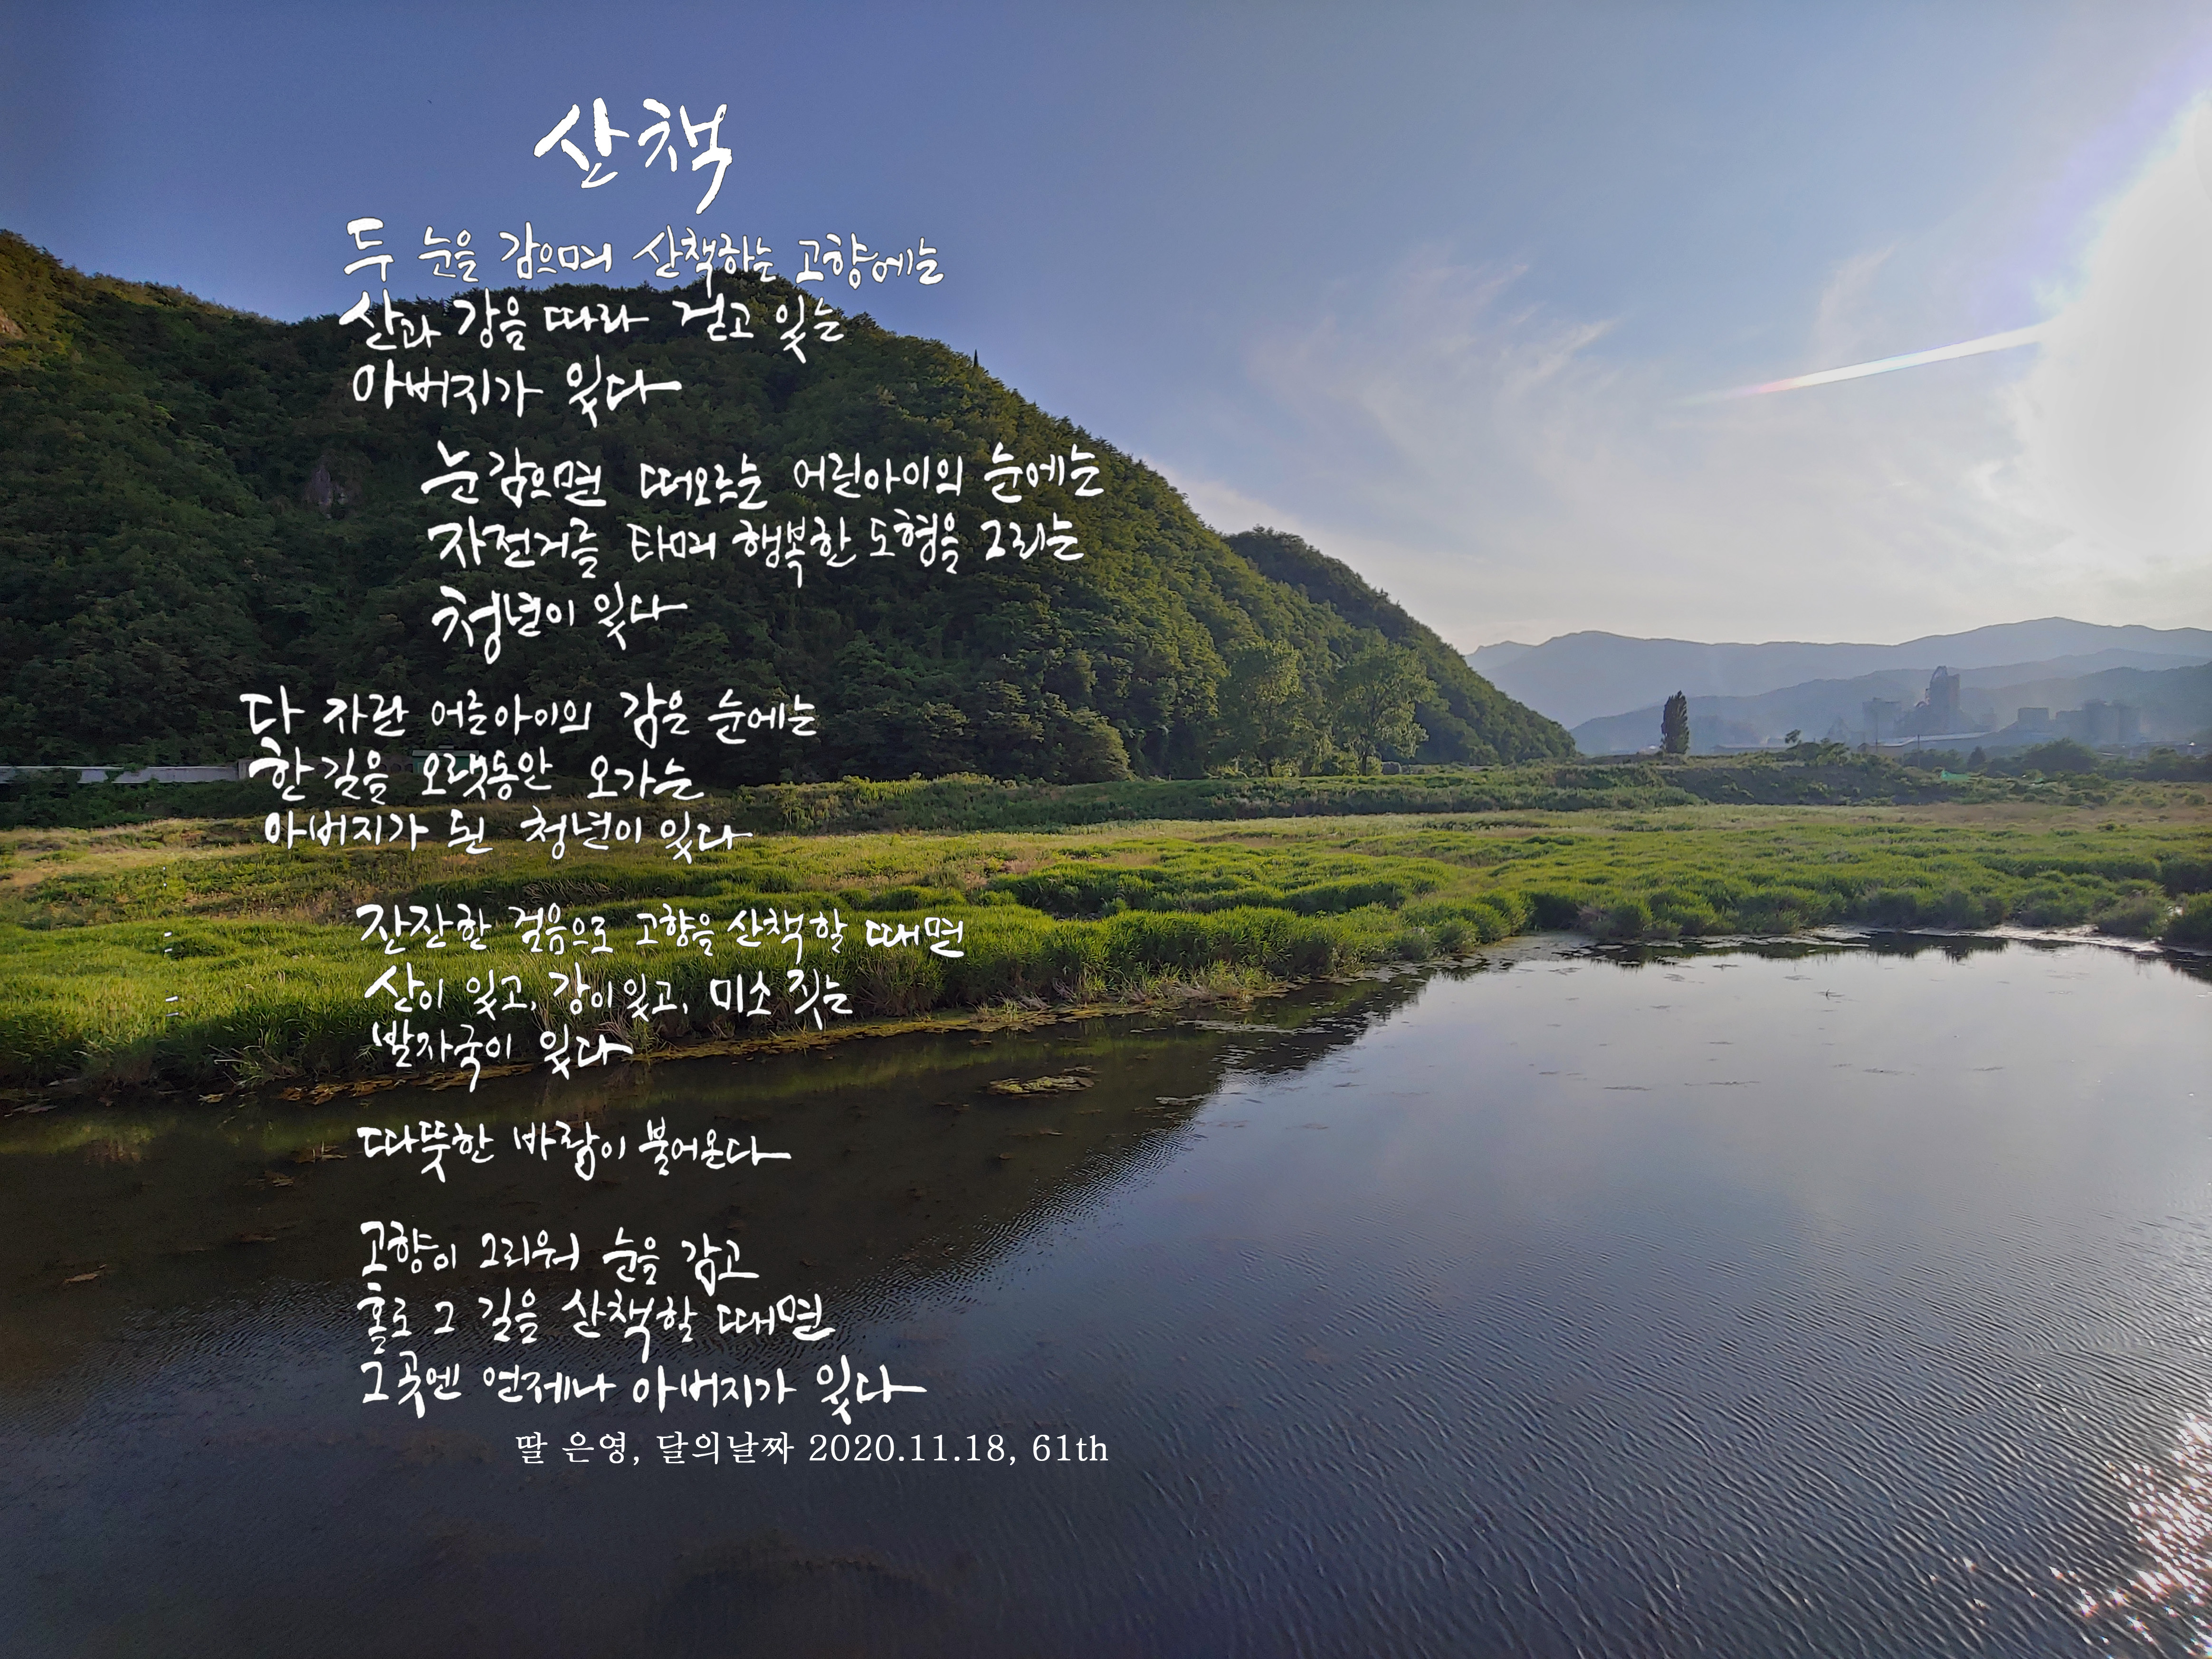 산책
두 눈을 감으며 산책하는 고향에는
산과 강을 따라 걷고 있는
아버지가 있다
눈 감으면 떠오르는 어린아이의 눈에는
자전거를 타며 행복한 도형을 그리는
청년이 있다
다 자란 어른아이의 감은 눈에는
한 길을 오랫동안 오가는
아버지가 된 청년이 있다
잔잔한 걸음으로 고향을 산책할 때면
산이 있고, 강이 있고, 미소 짓는
발자국이 있다
따뜻한 바람이 불어온다
고향이 그리워 눈을 감고
홀로 그 길을 산책할 때면
그곳엔 언제나 아버지가 있다
딸 은영, 달의날짜 2020.11.18, 61th